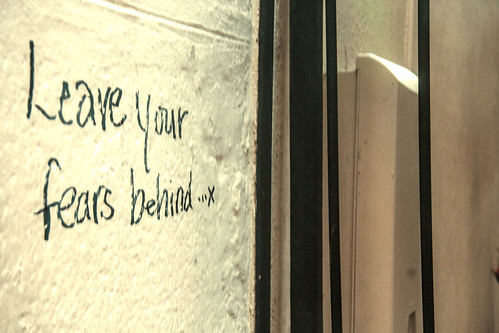 Leave your
fears behind...x